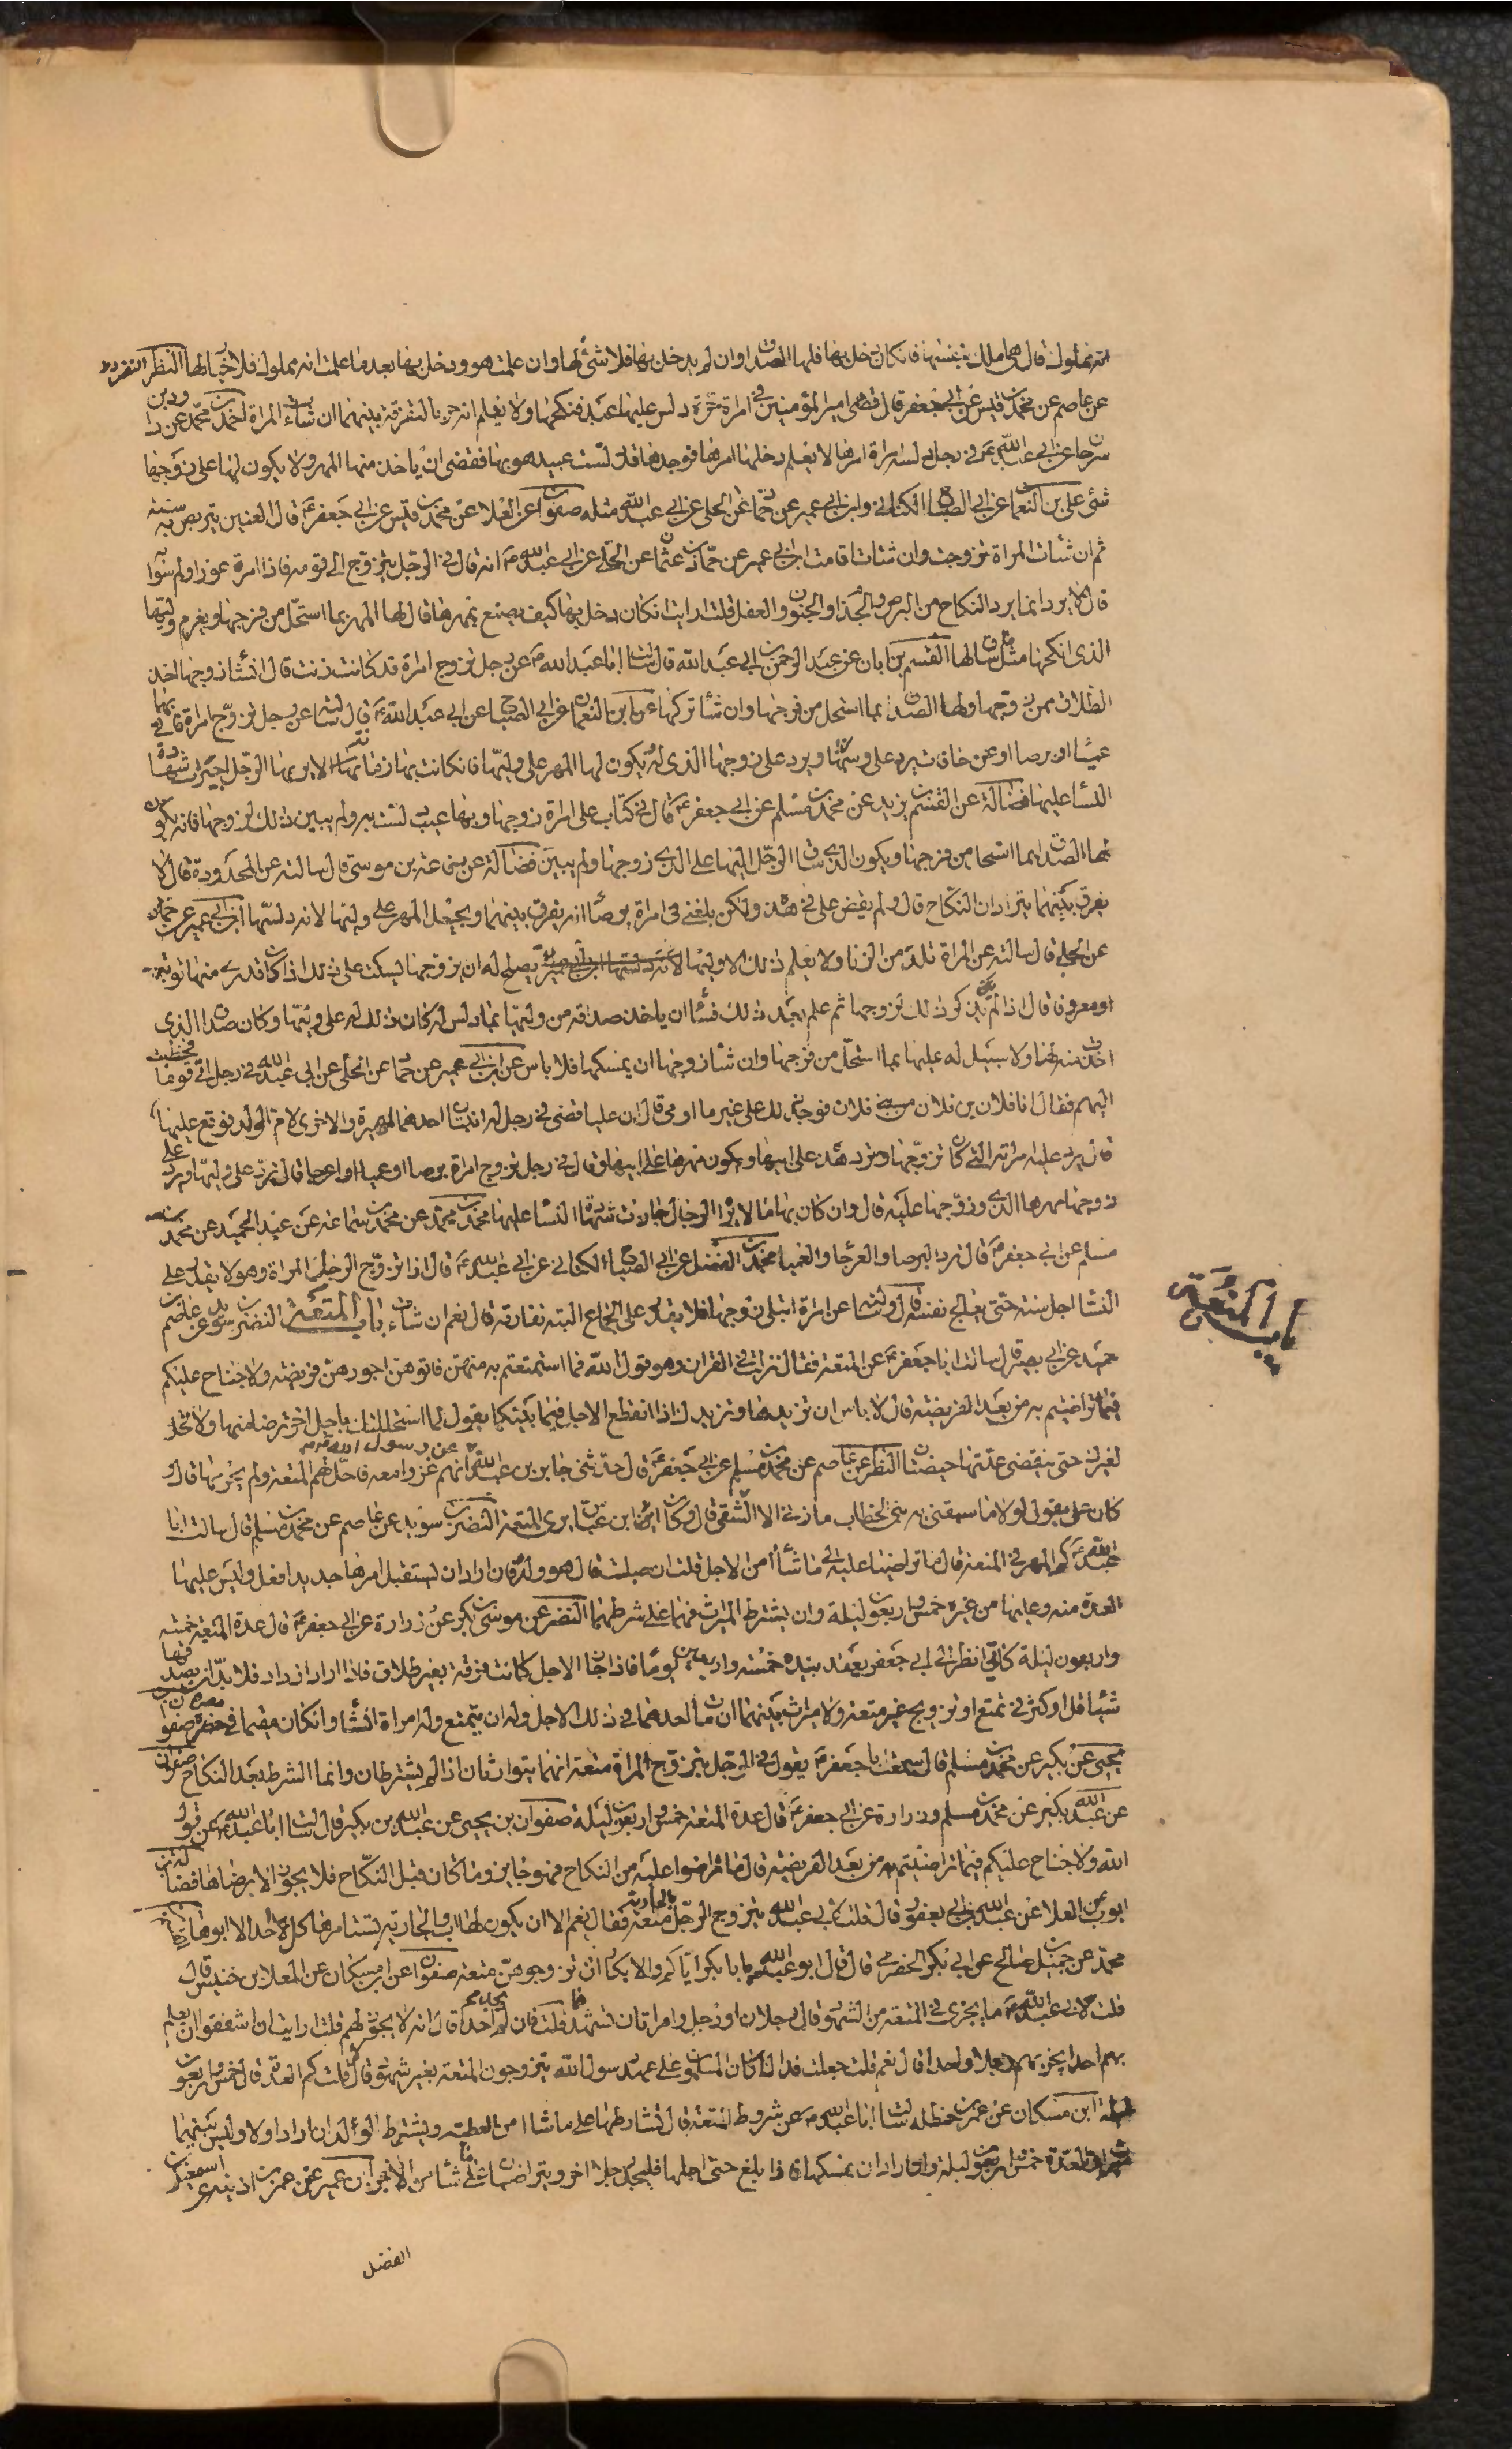 انه مملوك قال هي املك بنفسها فان كان دخل بها فلها الصداق وان لم يدخل بها فلا شئ لها وان علمت هو ودخل بها بعد ما علمت انه مملوك فلا خيار لها النظر النضر
عن عاصم عن محمد بن قيس عن ابي جعفر قال قضى امير المؤمنين في امراة حرة دلس عليها عبد فنكحها ولا يعلم انه حر بالتفرقة بينهما ان شاءت المراة احمد بن محمد عن داود بن
سرحان عن ابي عبد الله ع في رجل ولته امراة امرها لا يعلم دخلها امرها فوجدها قد دلست عيبا هو بها فقضى ان ياخذ منها المهر ولا يكون لها على زوجها
شئ علي بن النعمان عن ابي الصباح الكناني وابن ابي عمير عن حماد عن الحلبي عن ابي عبد الله مثله صفوان عن العلا عن محمد بن قيس عن ابي جعفر ع قال العنين يتربص به سنة
ثم ان شاءت المراة تزوجت وان شاءت اقامت ابن ابي عمير عن حماد بن عثمان عن الحلبي عن ابي عبد الله ع انه قال في الرجل يتزوج الى قوم فاذا امرة عورا ولم يبينوا
قال لا يرد انما يرد النكاح من البرص والجذام والجنون والعفل قلت ارايت ان كان دخل بها كيف يصنع بمهرها قال لها المهر بما استحل من فرجها ويغرم وليها
الذي انكحها مثل ما ساق لها القسم بن ابان عن عبد الرحمن بن ابي عبد الله قال سالت ابا عبد الله ع عن رجل تزوج امراة قد كانت زنت قال ان شا زوجها اخذ
الطلاق ممن زوجها ولها الصداق بما استحل من فرجها وان شا تركها علي بن النعمان عن ابي الصباح عن ابي عبد الله ع قال سالته عن رجل تزوج امراة فاتى بها
عميا او برصا او عرجا قال ترد على وليها ويرد على زوجها الذي له ويكون لها المهر على وليها فان كانت بها زمانة لا يراها الرجل اجيزت شهادة
النسا عليها فضالة عن القسم بن يزيد عن محمد بن مسلم عن ابي جعفر ع قال في كتاب علي امراة زوجها وبها عيب دلست به ولم يبين ذلك لزوجها فانه يكون
لها الصداق بما استحل من فرجها ويكون الذي ساق الرجل اليها على الذي زوجها ولم يبين فضالة عن رفاعة بن موسى قال سالته عن المحدودة قال لا
يفرق بينهما يترادان النكاح قال ولم يقض علي في هذه ولكن بلغني في امراة برصا انه يفرق بينهما ويجعل المهر على وليها لانه دلسها ابن ابي عمير عن حماد
عن الحلبي قال سالته عن المراة تلد من الزنا ولا يعلم ذلك الا وليها يصلح له ان يزوجها يسكت على ذلك اذا كان قد رى منها توبة
او معروفا قال ان لم يذكر ذلك لزوجها ثم علم بعد ذلك فشا ان ياخذ صداقه من وليها بما دلس له كان ذلك له على وليها وكان صداق الذي
اخذت منه لها ولا سبيل له عليها بما استحل من فرجها وان شا زوجها ان يمسكها فلا باس عن ابن ابي عمير عن حماد عن الحلبي عن ابي عبد الله في رجل اتى قوما فخطب
اليهم فقال انا فلان بن فلان من بني فلان فوجد ذلك على غير ما اومى قال ان عليا قضى في رجل له ابنتان احدهما لمهيرة والاخرى لام الولد فوقع عليها
قال يرد عليه مراته التي كان تزوجها وترد هذه على ابيها ويكون مهرها على ابيها وقال في رجل تزوج امراة برصا او عميا او عرجا قال ترد على وليها ويرد على
زوجها مهرها الذي زوجها عليه قال وان كان بها ما لا يرا الرجال جازت شهادة النسا عليها محمد بن محمد عن محمد بن سماعة عن عبد الحميد عن محمد بن
مسلم عن ابي جعفر ع قال ترد البرصا والعرجا والعميا محمد بن الفضل عن ابي الصباح الكناني عن ابي عبد الله ع قال اذا تزوج الرجل المراة وهو لا يقدر على
النسا اجل سنة حتى يعالج نفسه قال وسالته عن امراة ابتلى زوجها فلا يقدر على الجماع البتة تفارقه قال نعم ان شات باب المتعة النضر بن سويد عن عاصم بن
حميد عن ابي بصير قال سالت ابا جعفر ع عن المتعة فقال نزلت في القران وهو قول الله فما استمتعتم به منهن فاتوهن اجورهن فريضة ولا جناح عليكم
فيما تراضيتم به من بعد الفريضة قال لا باس ان تزيدها وتزيدك اذا انقطع الاجل فيما بينكما يقول لها استحللتك باجل اخر برضا منها ولا تحل
لغيرك حتى ينقضي عدتها حيضتان النظر عن عاصم عن محمد بن مسلم عن ابي جعفر ع قال حدثني جابر بن عبد الله عن رسول الله ص انهم غزوا معه فاحل لهم المتعة ولم يحرمها قال و
كان علي يقول لولا ما سبقني به بني الخطاب ما زنى الا الشقي قال وكان ابن عباس يرى المتعة النضر بن سويد عن عاصم عن محمد بن مسلم قال سالت ابا
عبد الله ع كم المهر في المتعة قال ما تراضيا عليه الى ما شاا من الاجل قلت ان حبلت قال هو ولده فان اراد ان يستقبل امرها جديدا فعل وليس عليها
العدة منه وعليها من غيره خمس واربعون ليلة وان يشترط الميراث فهما على شرطهما النضر عن موسى بن بكر عن زرارة عن ابي جعفر ع قال عدة المتعة خمسة
واربعون ليلة كاني انظر الى ابي جعفر يعقد بيده خمسة واربعين يوما فاذا جاز الاجل كانت فرقة بغير طلاق فاذا اراد ان يزداد فلا بد ان يصدقها
شيئا قل او كثر في تمتع او تزويج غير متعة ولا ميراث بينهما ان مات احدهما في ذلك الاجل وله ان يتمتع وله امراة ان شا وان كان مقيما في مصره صفوان بن
يحيى عن بكير عن محمد بن مسلم قال سمعت ابا جعفر ع يقول في الرجل يتزوج المراة متعة انهما يتوارثان اذا لم يشترطان وانما الشرط بعد النكاح صفوان
عن عبد الله بكير عن محمد بن مسلم وزرارة عن ابي جعفر ع قال عدة المتعة خمس واربعون ليلة صفوان بن يحيى عن عبد الله بن بكير قال سالت ابا عبد الله ع عن قول
الله ولا جناح عليكم فيما تراضيتم به من بعد الفريضة قال ما تراضوا عليه من النكاح فهو جايز وما كان قبل النكاح فلا يجوز الا برضاها فضالة بن
ايوب عن العلا عن عبد الله بن ابي يعفور قال قلت لابي عبد الله يتزوج الرجل بالجارية متعة فقال نعم الا ان يكون لها اب والجارية يستامرها كل احد الا ابوها
محمد عن جميل بن صالح عن ابي بكر الحضرمي قال قال ابو عبد الله ع يا با بكر اياكم والابكار ان تزوجوهن متعة صفوان عن ابن مسكان عن المعلا بن خنيس قال
قلت لابي عبد الله ع ما يجزى في المتعة من الشهود قال رجلان او رجل وامراتان تشهدهما قلت فان لم يجد احدا قال انه لا يجوز لهم قلت ارايت ان اشفقوا ان يعلم
بهم احد ايجزيهم رجل واحد قال نعم قلت جعلت فداك كان المسلمون على عهد رسول الله يتزوجون المتعة بغير شهود قال لا قلت كم العدة قال خمس واربعون
ليلة ابن مسكان عن عمر بن حنظله سالت ابا عبد الله ع عن شروط المتعة قال تشارطها على ما شاا من العطية ويشترط الولد ان اراد اولا وليس بينهما
ميراث والعدة خمس واربعون ليلة وان اراد ان يمسكها فاذا بلغ حتى اجلها فليجدد اجلا اخر ويتراضيان على ما شاا من الاجر ابن ابي عمير عن عمر بن اذينة عن اسمعيل بن
الفضل
باب المتعة